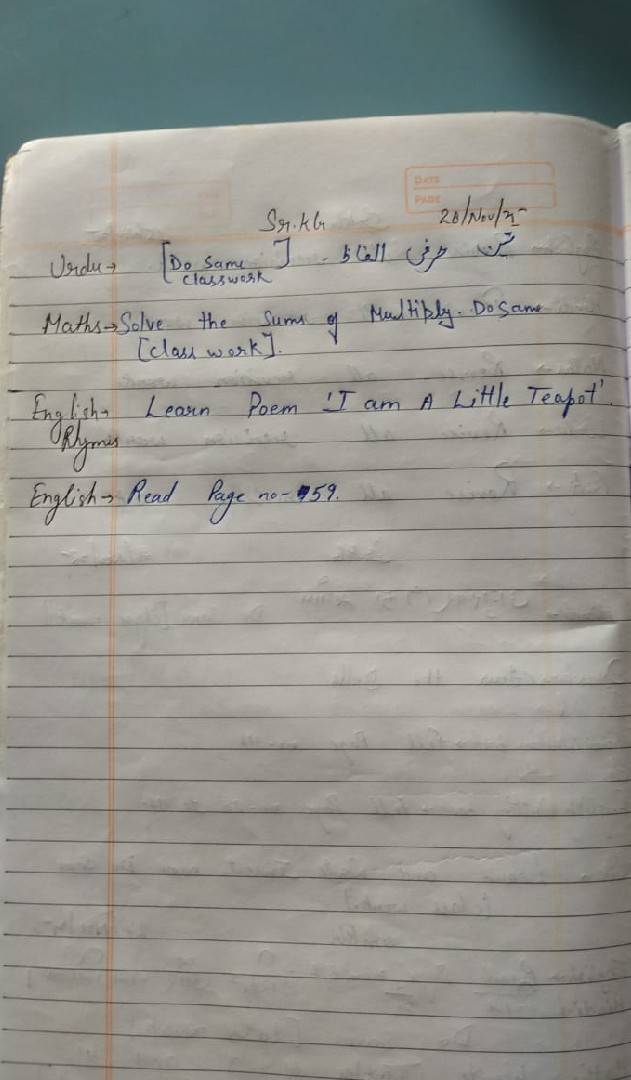 DATE
PAGE
Sr.KG 28/Nov/25
Urdu → [Do Same تین حرفی الفاظ
classwork]
Maths → Solve the Sums of Multiply. Do Same
[class work].
English → Learn Poem 'I am A Little Teapot'.
Rhymes
English → Read Page no - 59.